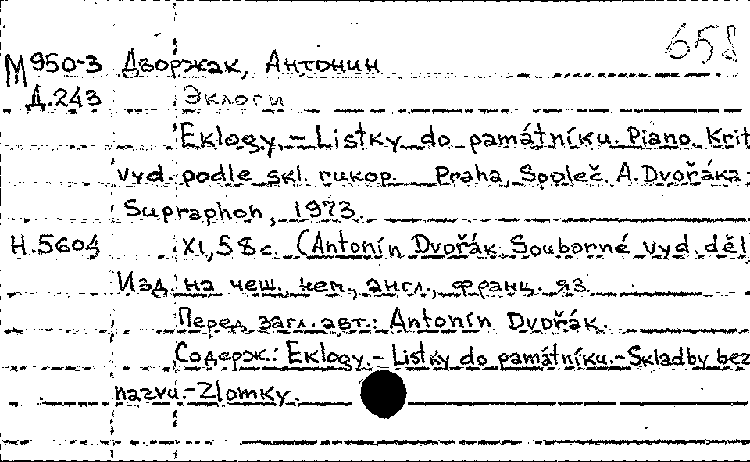 658
М950-3 Дворжак, Антонин
Д.243 Эклоги
Eklogy. – Lístky do památníku. Piano. Krit
vyd. podle skl. rukop. Praha, Společ. A. Dvořáka;
Supraphon, 1973.
Н.5604 XI, 58 с. (Antonín Dvořák. Souborné vyd. děl
Изд. на чеш., нем., англ., франц. яз.
Перед загл. авт.: Antonín Dvořák.
Содерж.: Eklogy. – Lístky do památníku. – Skladby bez
názvu. – Zlomky.